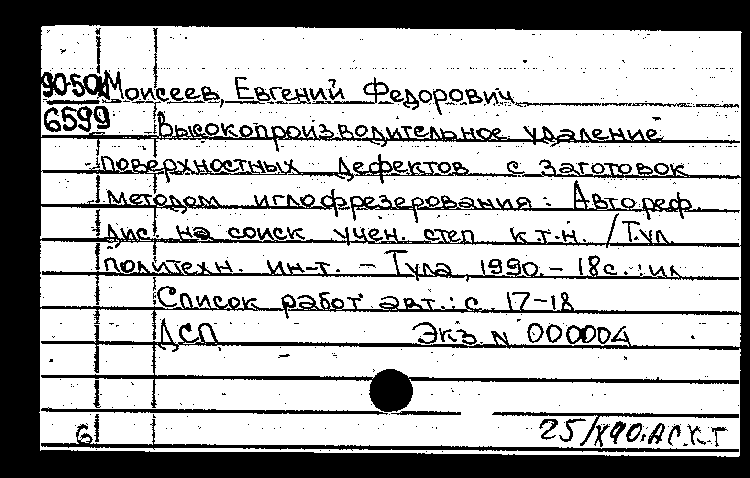 90-50 Моисеев, Евгений Федорович
6599 Высокопроизводительное удаление
поверхностных дефектов с заготовок
методом иглофрезерования: Автореф.
дис. на соиск учен. степ к.т.н. /Тул.
политехн. ин-т. - Тула, 1990. - 18с.: ил
Список работ авт.: с. 17-18
ДСП Экз N 000004
6 25/X90.